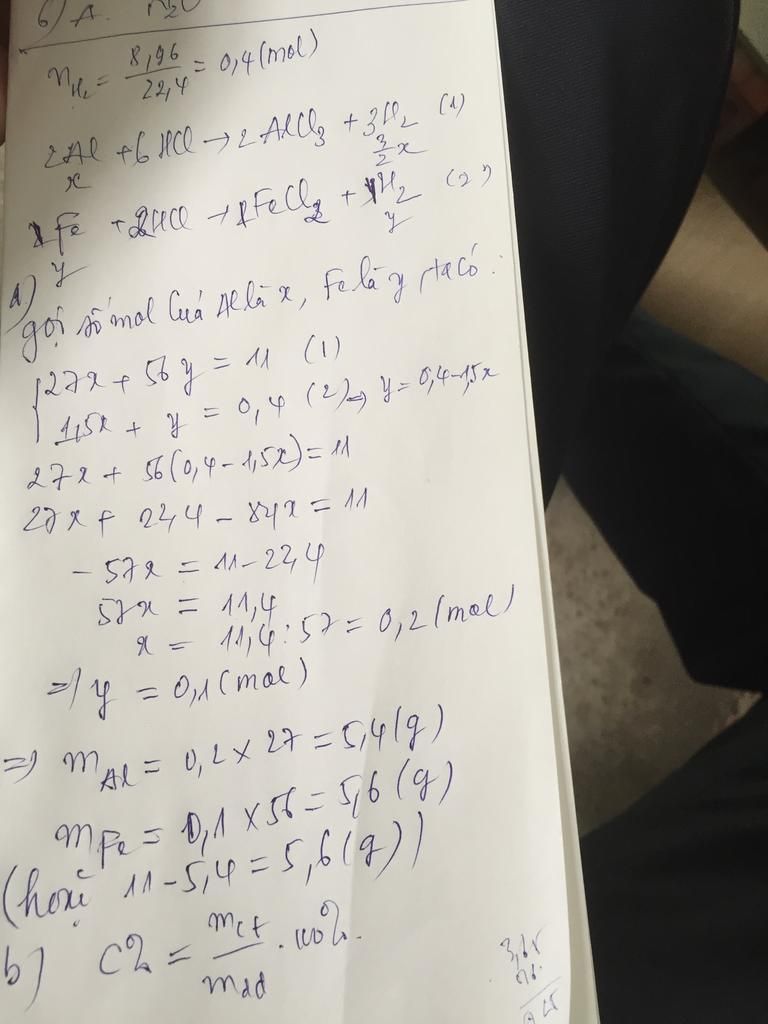 6) A.
nH₂ = 8,96/22,4 = 0,4 (mol)
2Al + 6HCl → 2AlCl₃ + 3H₂ (1)
x 3/2x
1Fe + 2HCl → 1FeCl₂ + 1H₂ (2)
y y
a)
gọi số mol của Al là x, Fe là y, ta có:
{27x + 56y = 11 (1)
1,5x + y = 0,4 (2) ⇒ y = 0,4-1,5x
27x + 56(0,4-1,5x) = 11
27x + 22,4 - 84x = 11
-57x = 11-22,4
57x = 11,4
x = 11,4:57 = 0,2 (mol)
⇒ y = 0,1 (mol)
⇒ mAl = 0,2 x 27 = 5,4 (g)
mFe = 0,1 x 56 = 5,6 (g)
(hoặc 11-5,4 = 5,6 (g))
b) C% = mct/mdd . 100%.